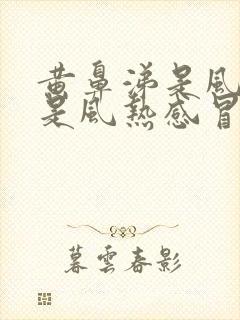 黄鼻涕是风
是风热感冒
暮雲春影